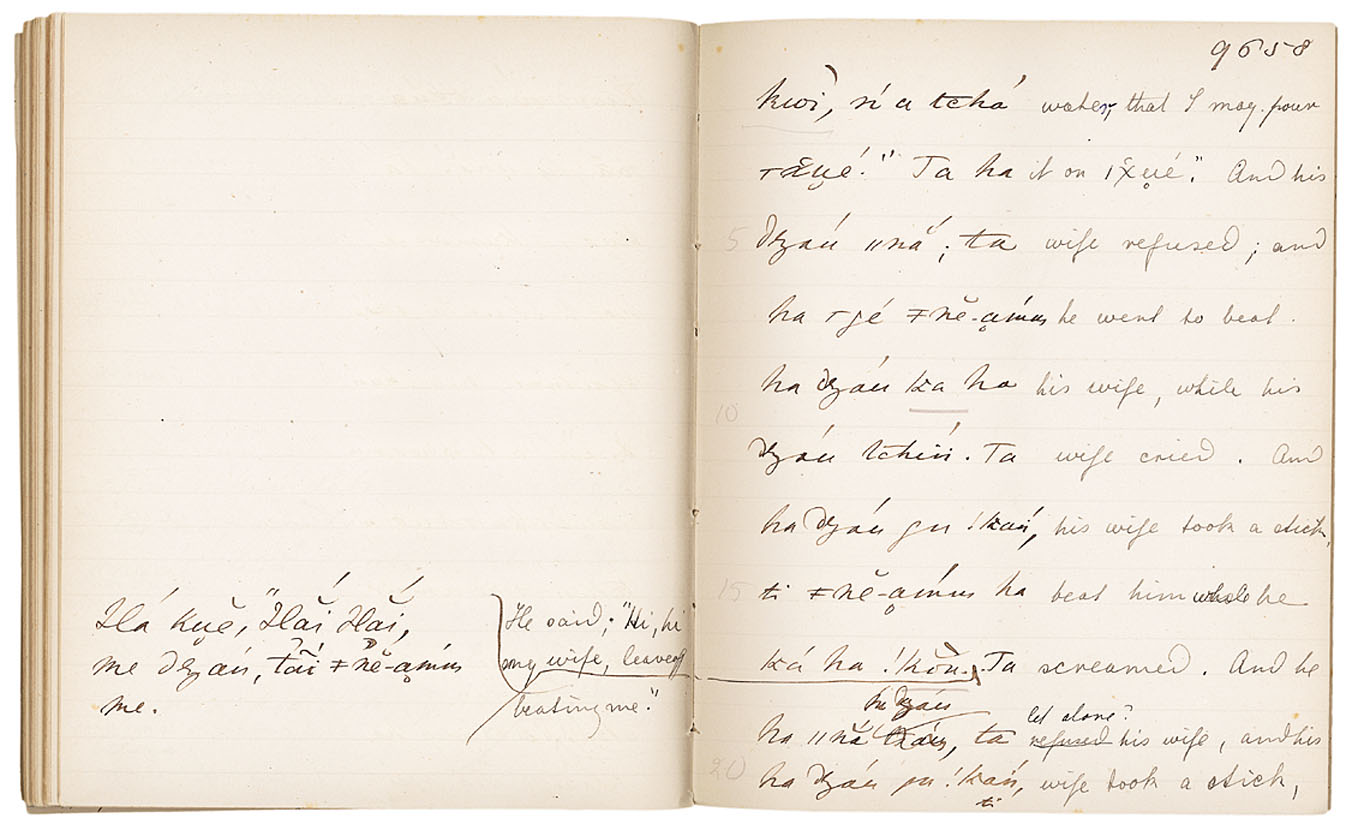 Há kuĕ, "Hăí Hăí,
me dzáu, tãí ǂnĕ-amm
me.
He said; "Hi, hi
my wife, leave off
beating me."
9658
kwì, ń a tchá water, that I may pour
ǀx̌ué." Ta ha it on ǀx̌ué." And his
5 dzáu ǁnă; ta wife refused; and
ha ǀgé ǂnĕ-amm he went to beat
ha dzáu ka ha his wife, while his
10
dzáu tchiń. Ta wife cried. And
ha dzáu gu !kań, his wife took a stick,
15 ti ǂnĕ-amm ha beat him while he
ká ha !kŏn. Ta screamed. And he
ha dzáu let alone?
ha ǁnă, ta refused his wife, and his
20 ha dzáu gu !kań, wife took a stick,
ti